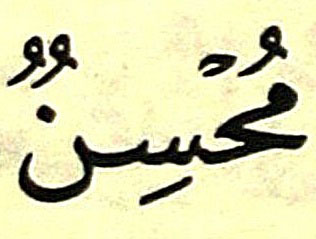 مُحْسِنٌ